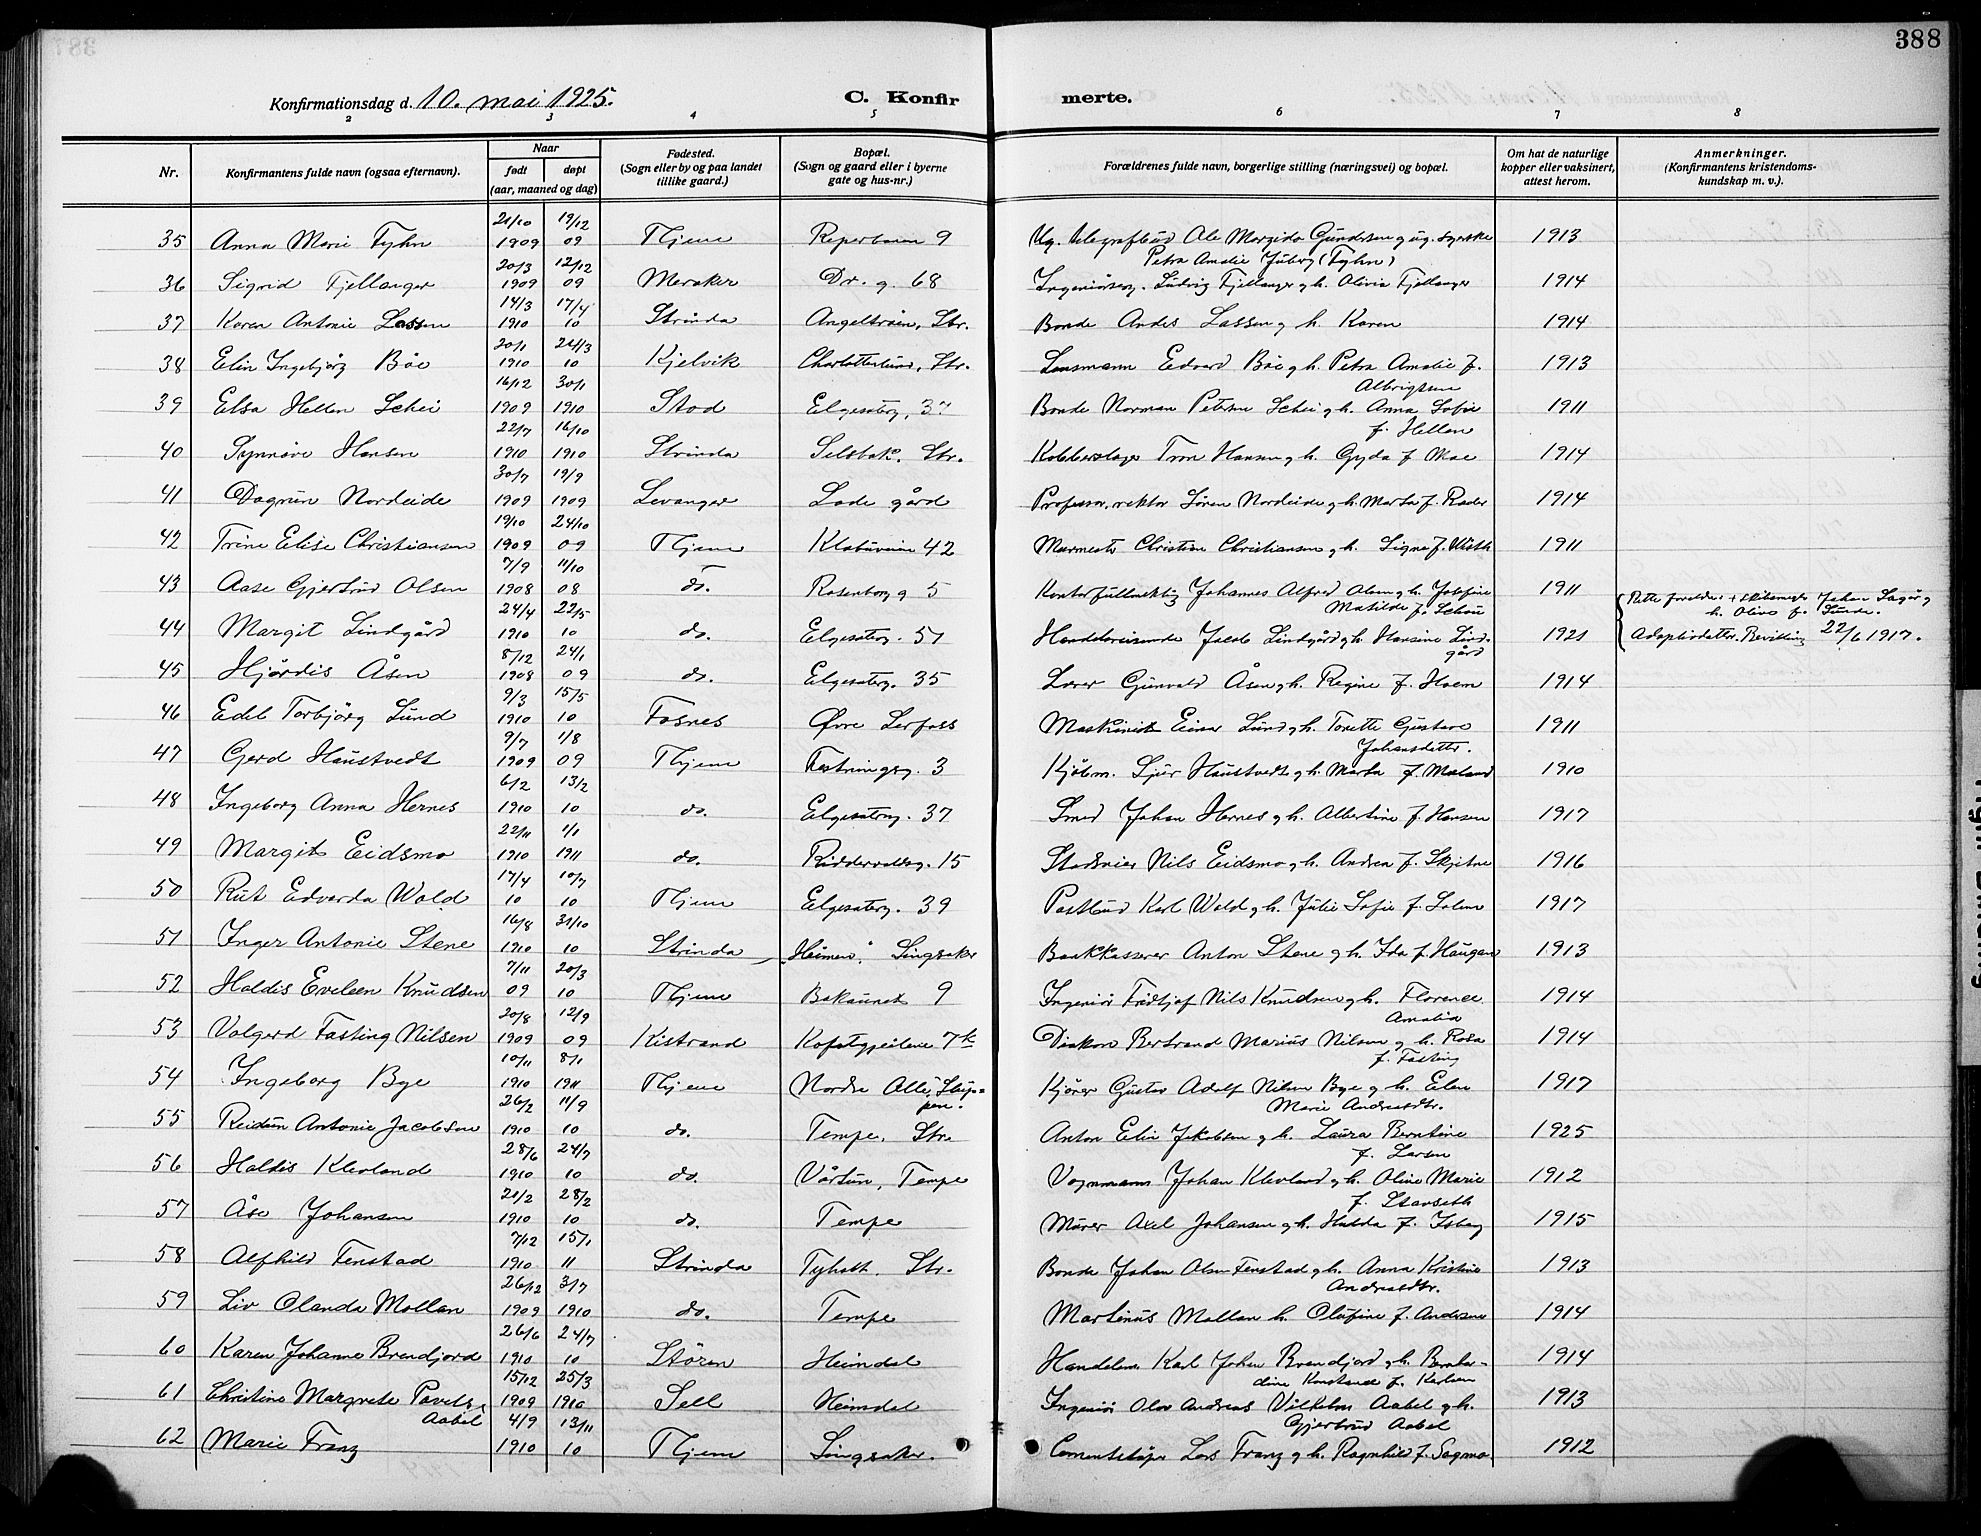 388
Konfirmationsdag d. 10. mai 1925. C. Konfirmerte.
2 3 4 5 6 7 8
Nr. Konfirmantens fulde navn (ogsaa efternavn). Naar født døpt (aar, maaned og dag) Fødested. (Sogn eller by og paa landet tillike gaard.) Bopæl. (Sogn og gaard eller i byerne gate og hus-nr.) Forældrenes fulde navn, borgerlige stilling (næringsvei) og bopæl. Om hat de naturlige kopper eller vaksinert, attest herom. Anmerkninger. (Konfirmantens kristendomskundskap m. v.).
35 Anna Marie Tyhn 21/10 1909 19/12 09 Thjem 9 Ug. telegrafbud Gundersen og ug. syerske Petra Amalie (Tyhn) 1913
36 Sigrid Fjellanger 20/3 1909 12/12 09 Meraker Dr. g. 68 Ludvig Fjellanger og h. Olivia Fjellanger 1914
37 Karen Antonie Lassen 14/3 1910 17/4 10 Strinda Angeltrøen, Str. Bonde Andes Lassen og h. Karen 1914
38 Elin Ingebjørg Böe 20/1 1910 24/3 10 Kjelvik Charlottenlund, Str. Lensmann Edvard Böe og h. Petra Amalie f. Albrigtsen 1913
39 Elsa Hellen Schei 16/12 1909 30/1 1910 Stod Elgesæterg. 37 Bonde Norman Petersen Schei og h. Anna Sofie f. Hellan 1911
40 Synnøve Hansen 22/7 1910 16/10 1910 Strinda Selsbak, Str. Kobberslager Tron Hansen og h. Gyda f. Moe 1914
41 Dagrun Nordeide 30/7 1909 19/9 1909 Levanger Lade gård Professor, rektor Sören Nordeide og h. Marta f. Rader 1914
42 Trine Elise Christiansen 19/10 1909 24/10 09 Thjem Klæbuveien 42 Murmester Christian Christiansen og h. Signe f. 1911
43 Aase Gjertrud Olsen 7/9 1908 11/10 08 do. Rosenborg g 5 Kontorfullmektig Johannes Alfred Olsen og h. Josefine Matilde f. Schou 1911
44 Margit Lindgård 24/4 1910 22/5 10 do. Elgesæterg. 51 Handelsreisende Jacob Lindgård og h. Hansine Lindgård 1921 Rette foreldre: Johan og h. f. Lunde. Adoptivdatter. Bevilling 22/6 1917.
45 Hjördis Åsen 8/12 1908 24/1 09 do. Elgesæterg. 35 Lærer Gunvald Åsen og h. Regine f. Hoem 1914
46 Edel Torbjörg Lund 9/3 1910 15/5 10 Fosnes Øvre Lerfoss Maskinist Einar Lund og h. Gustava Johansdatter. 1911
47 Gerd Haustvedt 9/7 1909 1/8 09 Thjem Festningsg. 3 Kjöbm. Sjur Haustvedt og h. Marta f. Mæland 1910
48 Ingeborg Anna Hernes 6/2 1910 13/2 10 do. Elgesæterg. 37 Smed Johan Hernes og h. Albertine f. Hansen 1917
49 Margit Eidsmo 22/11 1910 1/1 1911 do. Riddervoldsg. 15 Nils Eidsmo og h. Andrea f. Skjetne 1916
50 Rut Edvarda Wold 17/4 10 10/7 10 Thjem Elgesæterg. 39 Postbud Karl Wold og h. Julie Sofie f. Solem 1917
51 Inger Antonie Stene 16/8 1910 31/10 10 Strinda "Heimen," Singsaker Bankkasserer Anton Stene og h. Ida f. Haugan 1913
52 Haldis Eveleen Knudsen 7/11 09 20/3 10 Thjem Bakaunet 9 Ingeniör Fridtjof Nils Knudsen og h. Florence Amalia 1914
53 Valgerd Fasting Nilsen 20/8 1909 12/9 09 Kistrand 7k Diakon Bertrand Marius Nilsen og h. Rosa f. Fasting 1914
54 Ingeborg Bye 10/11 1910 8/1 1911 Thjem Nordre Allé, Kjörer Gustav Adolf Nilsen Bye og h. Elen Marie Andreasdtr. 1917
55 Reidun Antonie Jacobsen 26/2 1910 11/9 10 do. Tempe, Str. Anton Elin Jakobsen og h. Laura Berntine f. Larsen 1925
56 Haldis Klevland 28/6 1910 24/7 10 do. Vårtun, Tempe Vognmann Johan Klevland og h. Oline Marie f. Stavseth 1912
57 Åse Johansen 21/2 1910 28/2 10 do. Tempe Murer Axel Johansen og h. Hulda f. 1915
58 Alfhild Fenstad 7/12 1910 15/1 11 Strinda Tyholt, Str. Bonde Johan Olsen Fenstad og h. Anna Kristine Andreasdtr. 1913
59 Liv Olanda Mollan 26/12 1909 3/7 1910 do. Tempe Martinus Mollan h. Olufine f. Andersen 1914
60 Karen Johanne Brendjord 26/6 1910 24/7 10 Stören Heimdal Handelsm. Karl Johan Brendjord og h. Berntdine Konstanse f. Karlsen 1914
61 Christine Margrete Pavels Aabel 15/12 1909 25/3 1910 Sell Heimdal Ingeniör Olav Andreas Vilhelm Aabel og h. Gjertrud Aabel 1913
62 Marie Franz 4/9 1910 13/11 10 Thjem Singsaker. Cementstöper Lars Franz og h. Ragnhild f. Sagmo. 1912